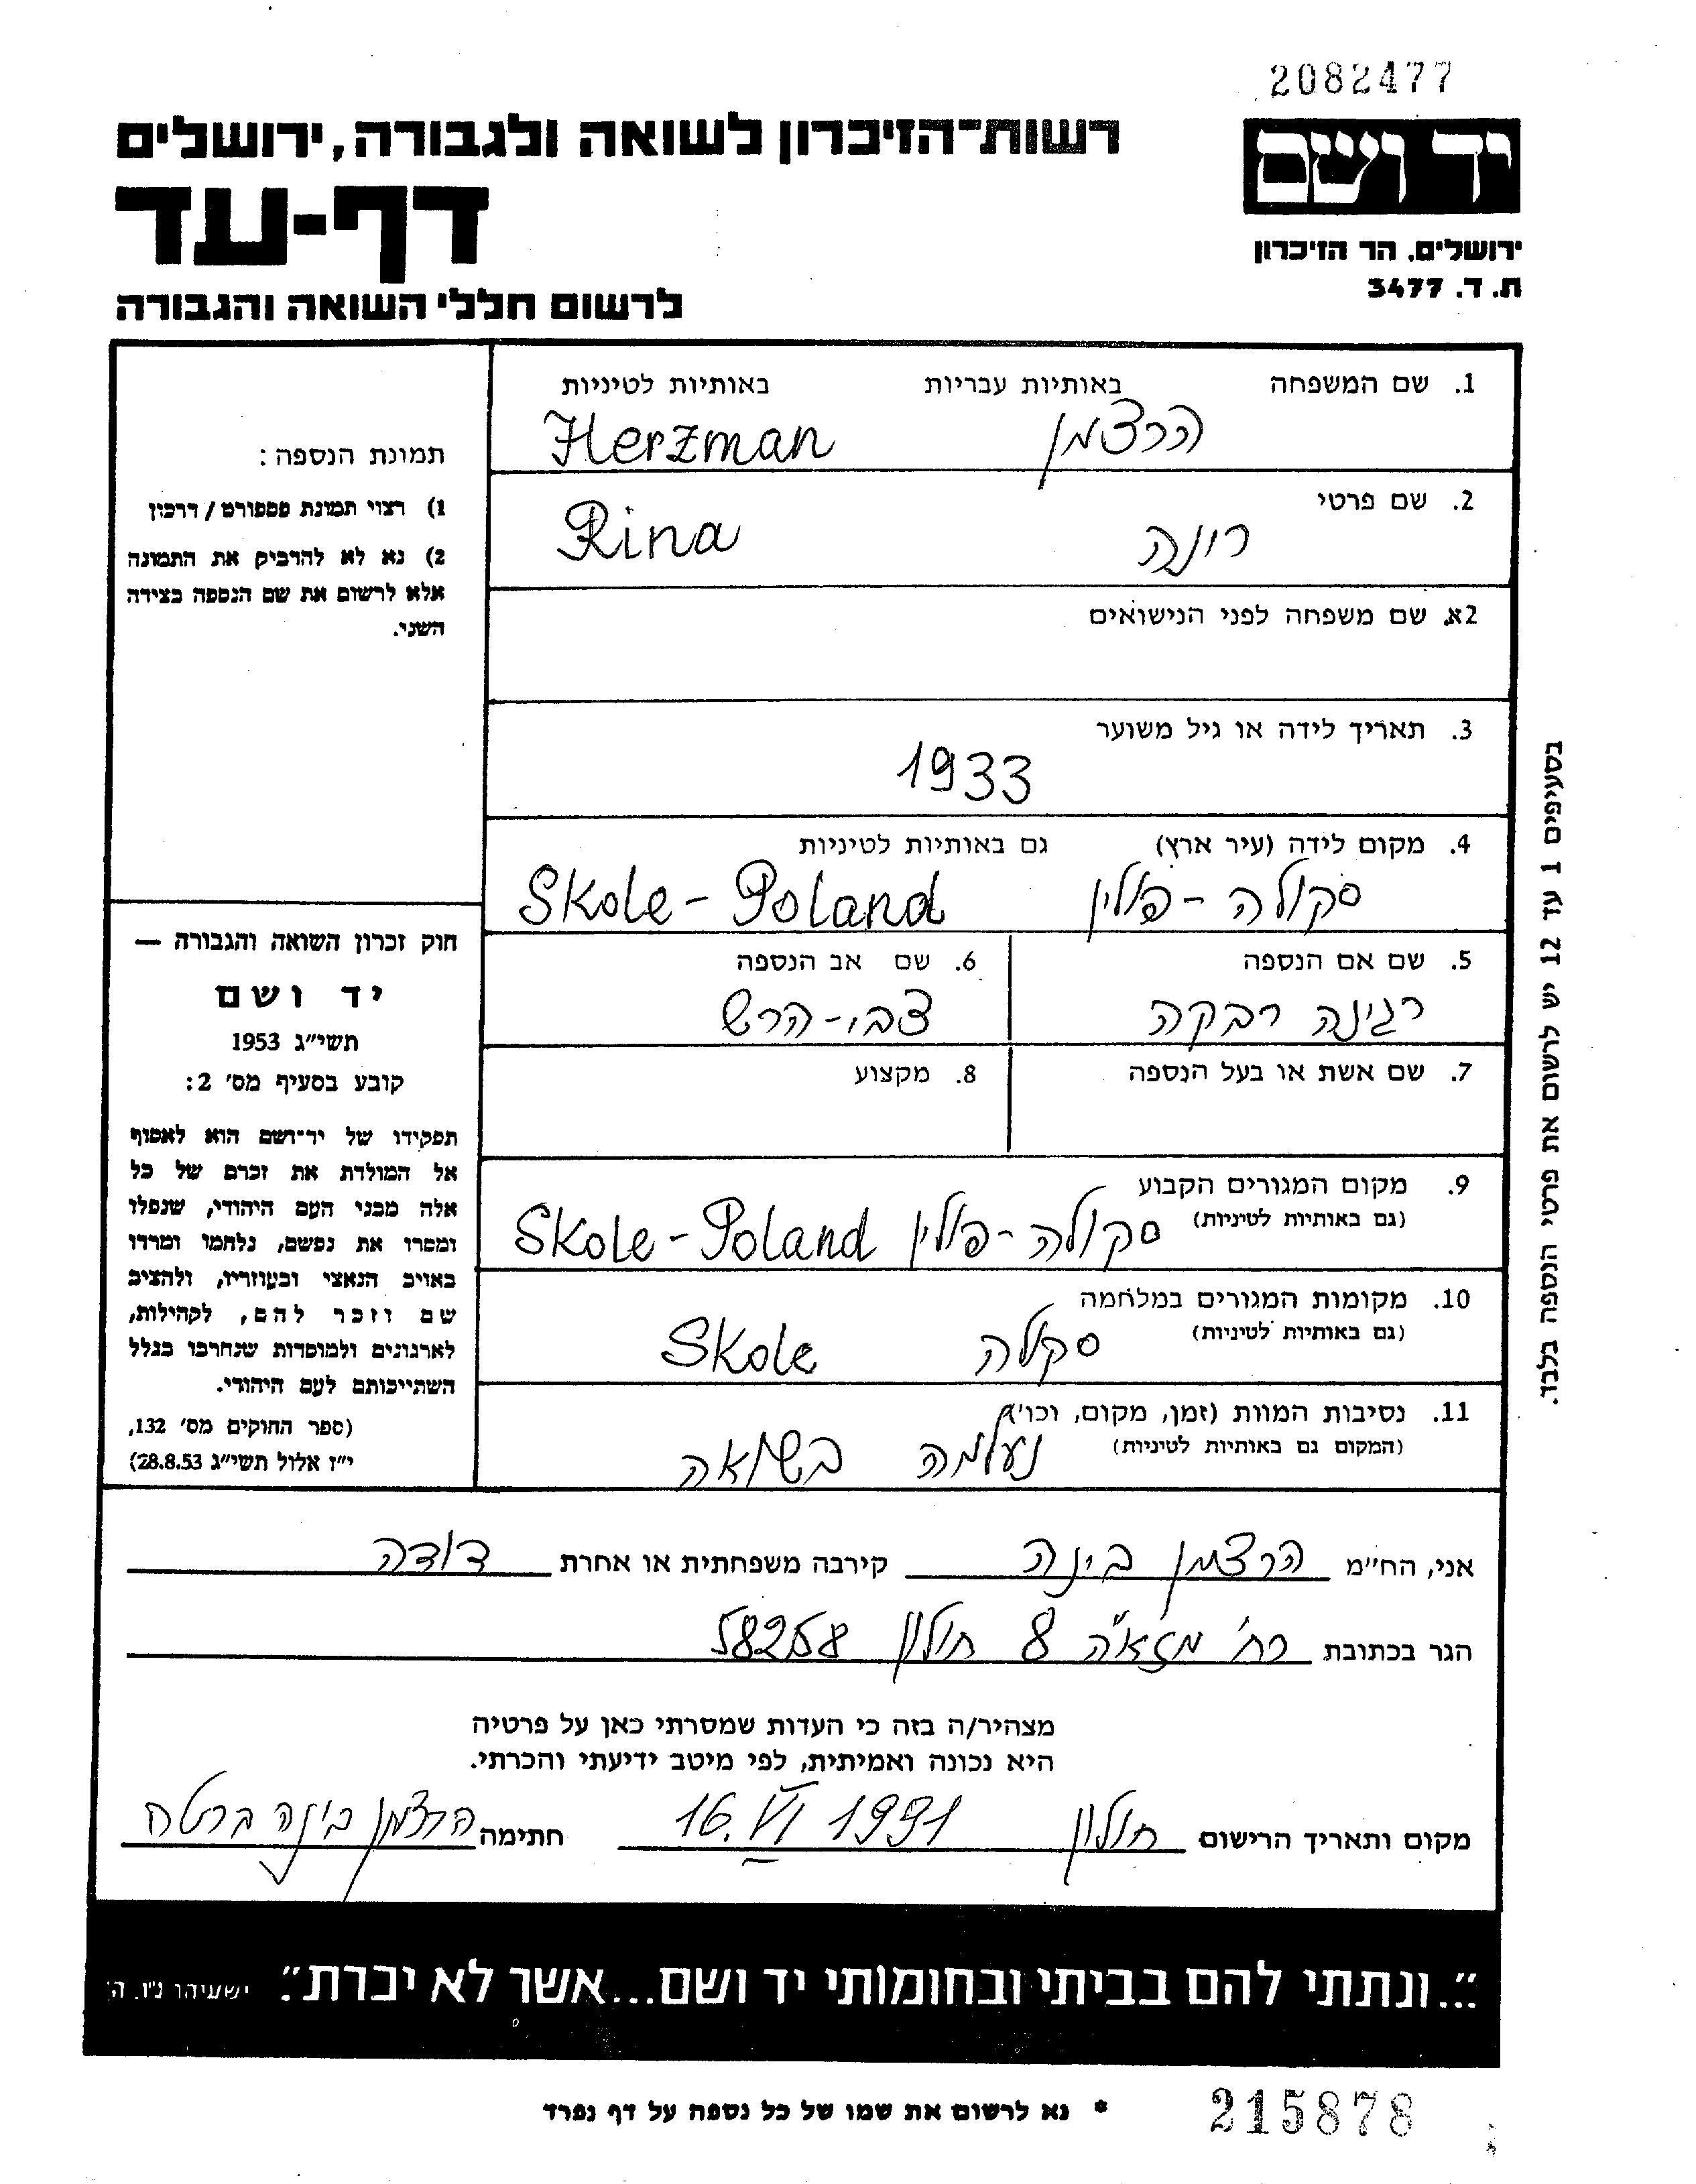 2082477
רשות-הזיכרון לשואה ולגבורה, ירושלים
יד ושם
דף-עד
ירושלים, הר הזיכרון
ת.ד. 3477
לרשום חללי השואה והגבורה
1. שם המשפחה באותיות עבריות באותיות לטיניות
הרצמן Herzman
2. שם פרטי
רינה Rina
2א. שם משפחה לפני הנישואים
3. תאריך לידה או גיל משוער
1933
4. מקום לידה (עיר ארץ) גם באותיות לטיניות
סקולה - פולין Skole - Poland
5. שם אם הנספה 6. שם אב הנספה
רגינה רבקה צבי - הרש
7. שם אשת או בעל הנספה 8. מקצוע
9. מקום המגורים הקבוע
(גם באותיות לטיניות)
סקולה - פולין Skole - Poland
10. מקומות המגורים במלחמה
(גם באותיות לטיניות)
סקולה Skole
11. נסיבות המוות (זמן, מקום, וכו')
(המקום גם באותיות לטיניות)
נעלמה בשואה
תמונת הנספה:
1) רצוי תמונת פספורט / דרכון
2) נא לא להדביק את התמונה
אלא לרשום את שם הנספה בצידה
השני.
חוק זכרון השואה והגבורה —
יד ושם
תשי"ג 1953
קובע בסעיף מס' 2:
תפקידו של יד-ושם הוא לאסוף
אל המולדת את זכרם של כל
אלה מבני העם היהודי, שנפלו
ומסרו את נפשם, נלחמו ומרדו
באויב הנאצי ובעוזריו, ולהציב
שם וזכר להם, לקהילות,
לארגונים ולמוסדות שנחרבו בגלל
השתייכותם לעם היהודי.
(ספר החוקים מס' 132,
י"ז אלול תשי"ג 28.8.53)
בסעיפים 1 עד 12 יש לרשום את פרטי הנספה בלבד.
אני, הח"מ הרצמן בינה קירבה משפחתית או אחרת דודה
הגר בכתובת רח' מזא"ה 8 חולון 58258
מצהיר/ה בזה כי העדות שמסרתי כאן על פרטיה
היא נכונה ואמיתית, לפי מיטב ידיעתי והכרתי.
מקום ותאריך הרישום חולון 16.VI 1991 חתימה הרצמן בינה ברטה
"...ונתתי להם בביתי ובחומותי יד ושם...אשר לא יכרת". ישעיהו נ"ו, ה'
* נא לרשום את שמו של כל נספה על דף נפרד
215878